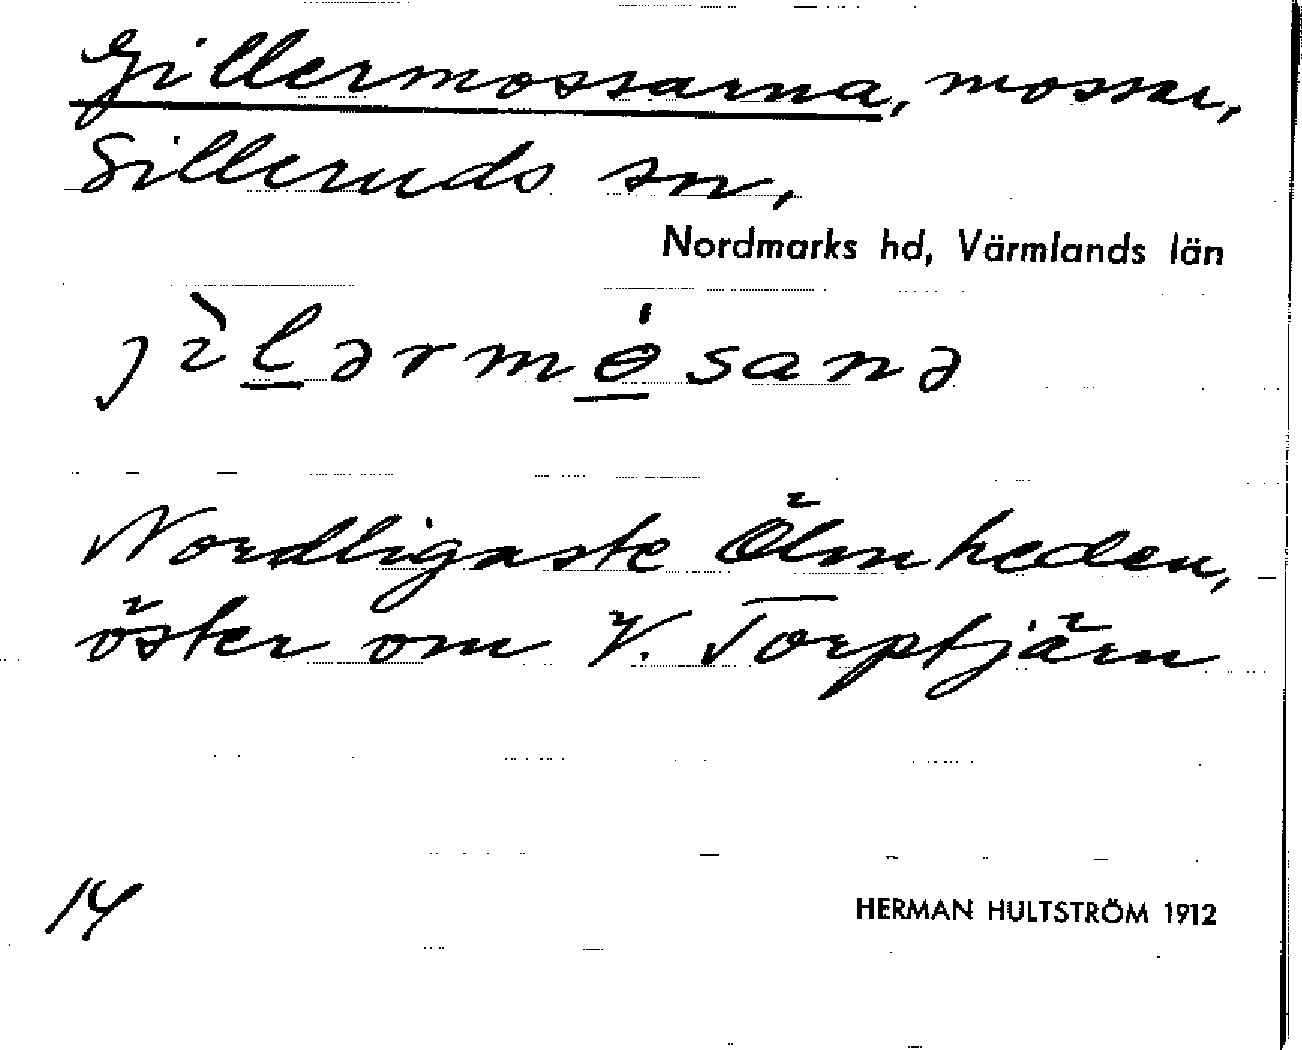 Gillermossarna, mossar,
Silleruds sn,
Nordmarks hd, Värmlands län
jìlərmósanə
Nordligaste Ölmheden,
öster om V. Torptjärn
14
HERMAN HULTSTRÖM 1912